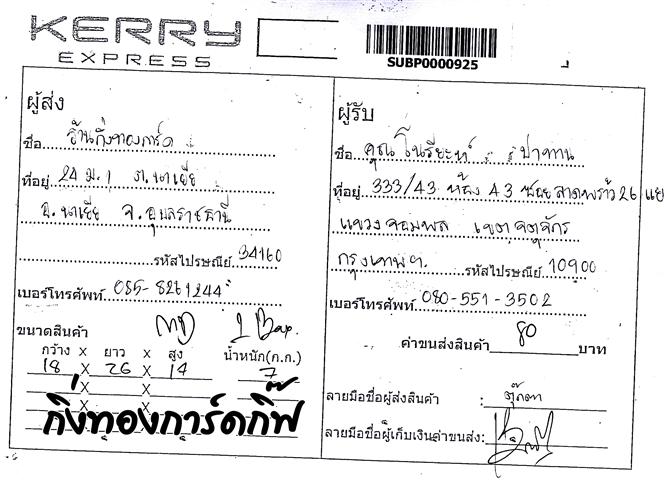 KERRY
EXPRESS
SUBP0000925
ผู้ส่ง
ชื่อ ร้านกิ่งทองการ์ด
ที่อยู่ 24 ม.1 ต.นาเยีย
อ.นาเยีย จ.อุบลราชธานี
รหัสไปรษณีย์ 34160
เบอร์โทรศัพท์ 085-8261244
ขนาดสินค้า
กว้าง x ยาว x สูง น้ำหนัก(ก.ก.)
18 x 26 x 14 7
X X
X X
กิ่งทองการ์ดกิ๊ฟ
ผู้รับ
ชื่อ คุณ ปาทาน
ที่อยู่ 333/43 ห้อง 43 ซอยลาดพร้าว 26 แย
แขวงจอมพล เขตจตุจักร
กรุงเทพฯ รหัสไปรษณีย์ 10900
เบอร์โทรศัพท์ 080-551-3502
ค่าขนส่งสินค้า 80 บาท
ลายมือชื่อผู้ส่งสินค้า : ตุ๊กตา
ลายมือชื่อผู้เก็บเงินค่าขนส่ง: